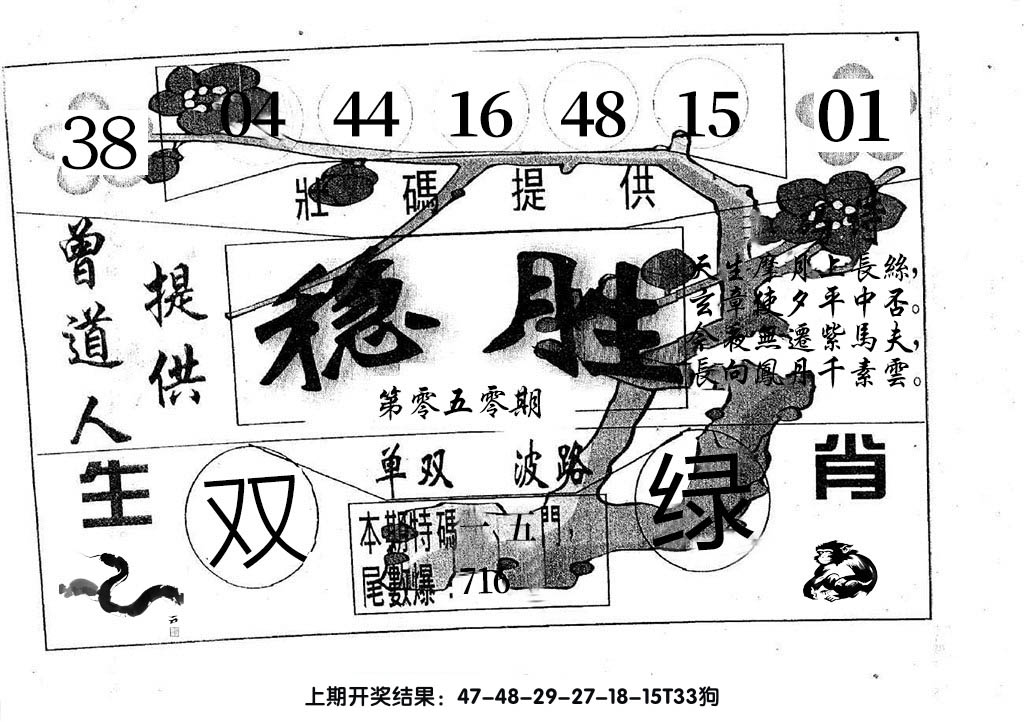 38 04 44 16 48 15 01
壯碼提供
特
曾道人
提供
稳胜
第零五零期
天生摩月上長絲，
玄章使夕平中否。
余夜無遷紫馬夫，
長向鳳丹千素雲。
单双 波路
生肖
双 绿
本期特碼一、五門，
尾數爆：716
上期开奖结果：47-48-29-27-18-15T33狗